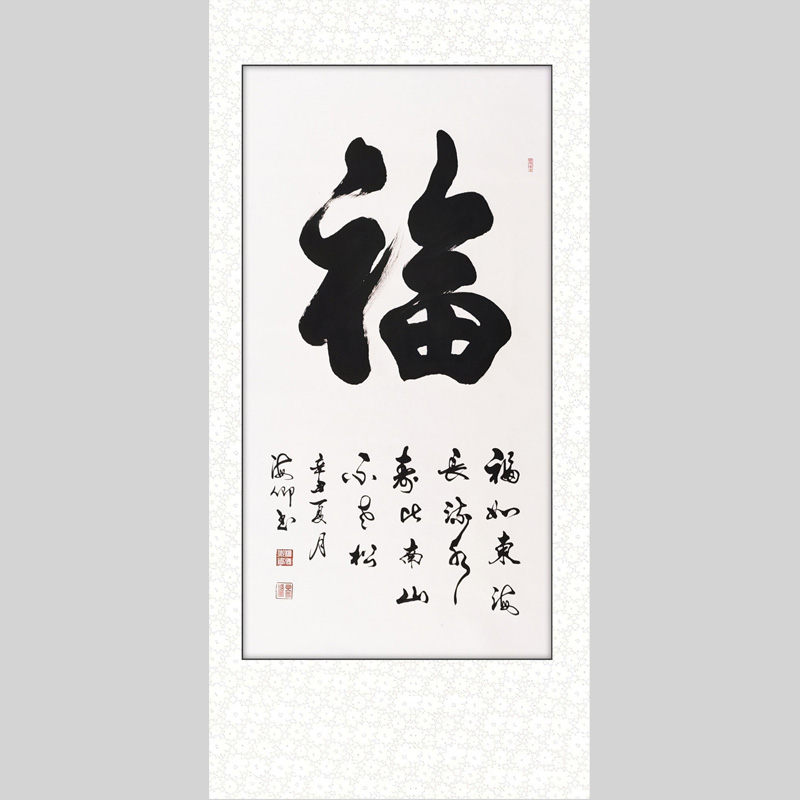 福
福如東海
長流水
壽比南山
不老松
辛丑夏月
海卿书